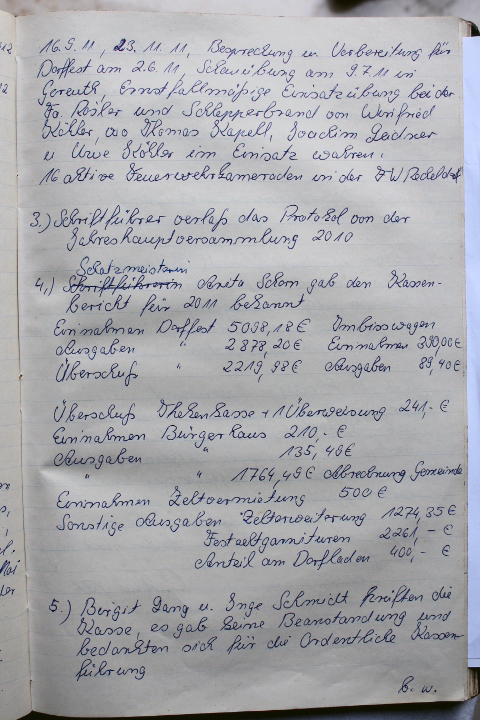 16.9.11, 23.11.11, Besprechung u. Vorbereitung für
Dorffest am 2.6.11, Schauübung am 9.7.11 in
Gereuth, Ernstfallmäßige Einsatzübung bei der
Fa. Rösler und Schlepperbrand von Winfried
Köhler, wo Thomas Kapell, Joachim Leidner
u Uwe Köhler im Einsatz wahren.
16 aktive Feuerwehrkameraden in der FW
3.) Schriftführer verlaß das Protokol von der
Jahreshauptversammlung 2010
Schatzmeisterin
4.) Schriftführerin Anita Schorn gab den Kassen-
bericht für 2011 bekannt
Einnahmen Dorffest 5098,18 € Imbisswagen
Ausgaben " 2878,20 € Einnahmen 390,00 €
Überschuß " 2219,98 € Ausgaben 89,40 €
Überschuß Thekenkasse + 1 Überweisung 241,- €
Einnahmen Bürgerhaus 210,- €
Ausgaben " 135,49 €
" " 1764,49 € Abrechnung Gemeinde
Einnahmen Zeltvermietung 500 €
Sonstige Ausgaben Zelterweiterung 1274,35 €
Festzeltgarnituren 2261,- €
Anteil am Dorfladen 400,- €
5.) Birgit Dang u. Inge Schmidt prüften die
Kasse, es gab keine Beanstandung und
bedankten sich für die Ordentliche Kassen-
führung
b. w.